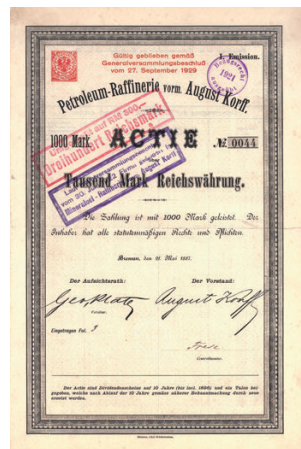 Gültig geblieben gemäß
Generalversammlungsbeschluß
vom 27. September 1929
1. Emission.
1921
Petroleum-Raffinerie vorm. August Korff.
1000 Mark. ACTIE № 0044
auf RM 300.-
Dreihundert Reichsmark
Generalversammlungsbeschluß
vom 30.
Mineraloel-Raffinerie August Korff
Tausend Mark Reichswährung.
Die Zahlung ist mit 1000 Mark geleistet. Der
Inhaber hat alle statutenmäßigen Rechte und Pflichten.
Bremen, den
Der Aufsichtsrath: Der Vorstand:
August Korff
Eingetragen Fol. 3
Der Actie sind Dividendenscheine auf 10 Jahre (bis incl. 1896) und ein Talon bei-
gegeben, welche nach Ablauf der 10 Jahre gemäss näherer Bekanntmachung durch neue
ersetzt werden.